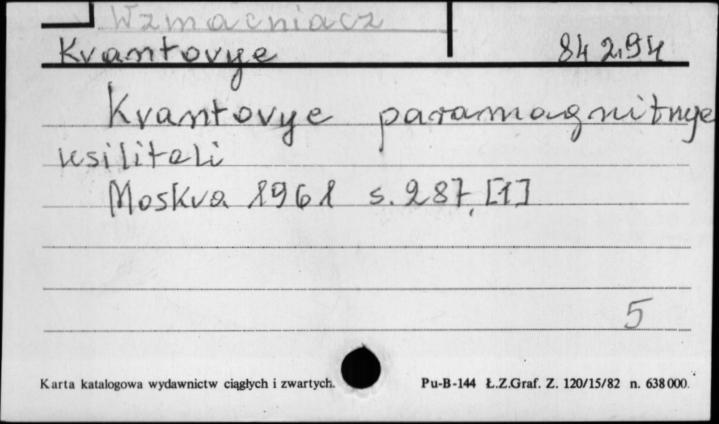 Wzmacniacz
Kvantovye 84294
Kvantovye paramagnitnye
usiliteli
Moskva 1961 s. 287, [1]
5
Karta katalogowa wydawnictw ciągłych i zwartych. Pu-B-144 Ł.Z.Graf. Z. 120/15/82 n. 638000.